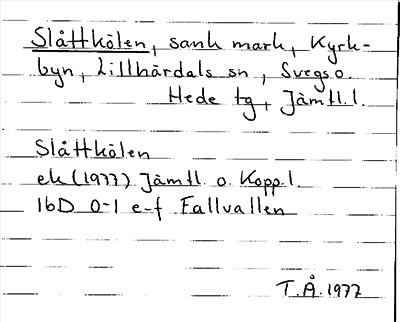 Slåttkölen, sank mark, Kyrk-
byn, Lillhärdals sn, Svegs o.
Hede tg, Jämtl. l.
Slåttkölen
ek (1977) Jämtl. o. Kopp. l.
16D 0-1 e-f Fallvallen
T.Å. 1977